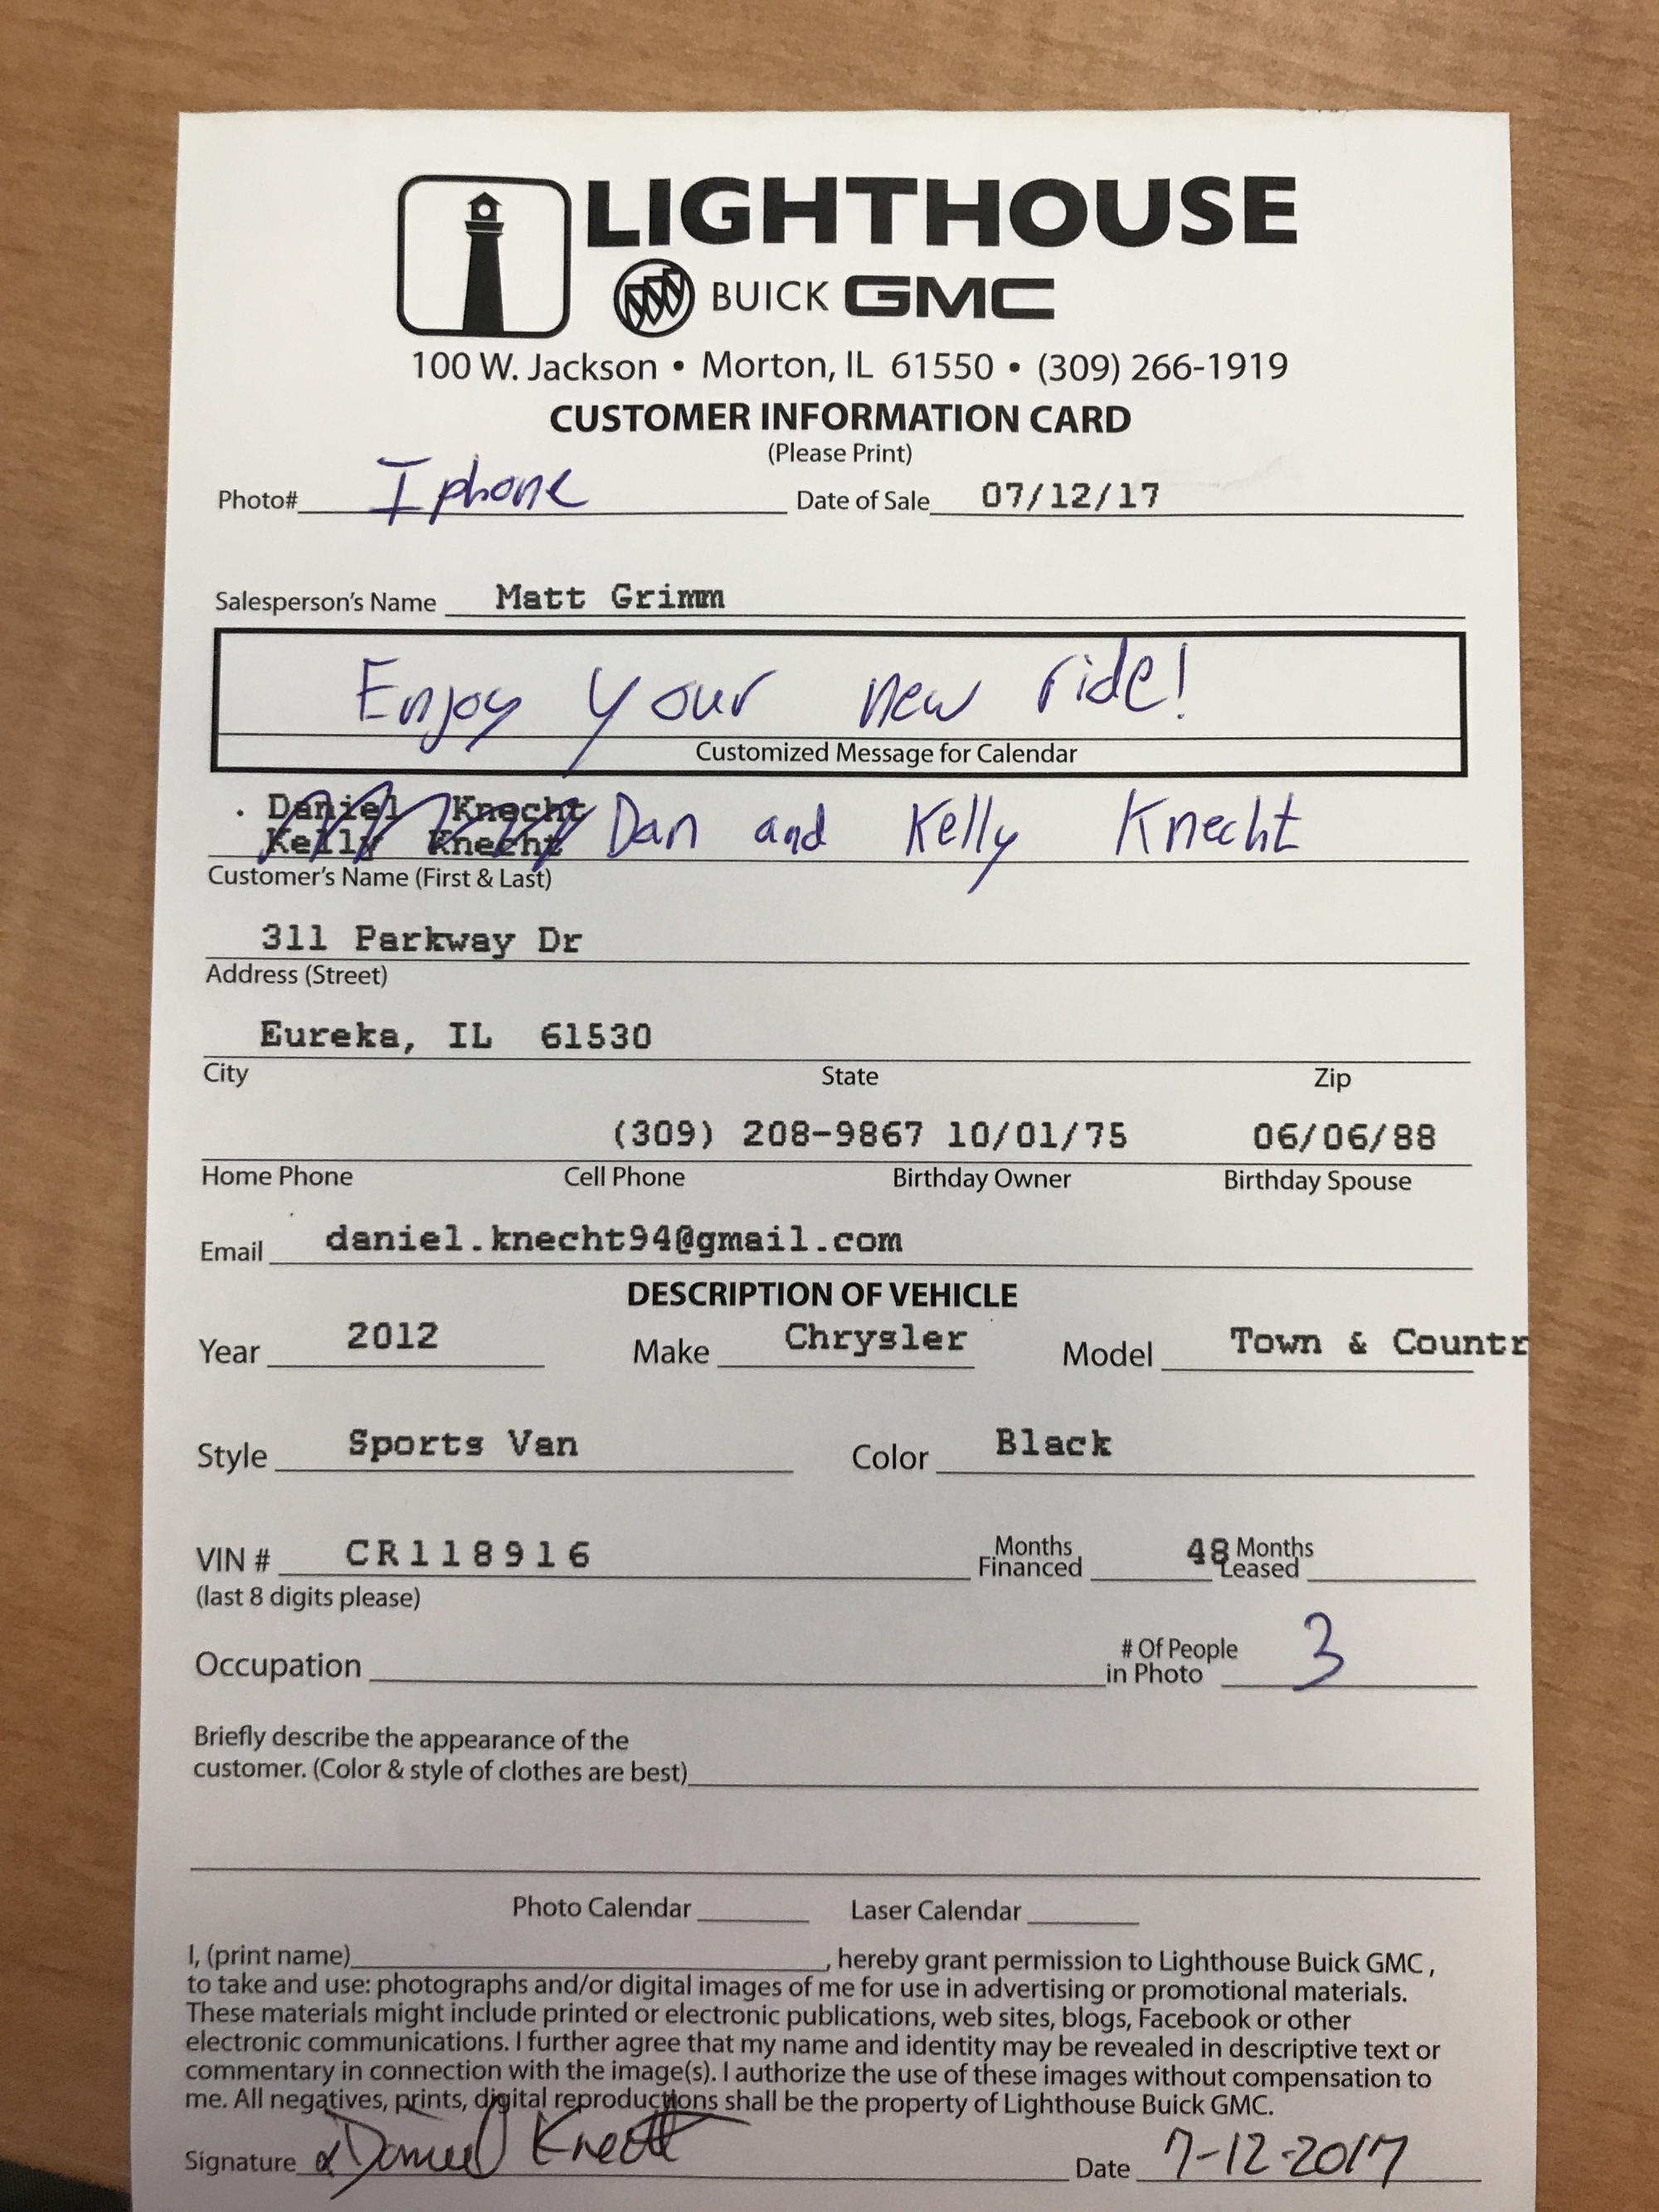 LIGHTHOUSE
BUICK GMC
100 W. Jackson • Morton, IL 61550 • (309) 266-1919
CUSTOMER INFORMATION CARD
(Please Print)
Photo# Iphone Date of Sale 07/12/17
Salesperson's Name Matt Grimm
Enjoy your new ride!
Customized Message for Calendar
Daniel Knecht
Kelly Knecht Dan and Kelly Knecht
Customer's Name (First & Last)
311 Parkway Dr
Address (Street)
Eureka, IL 61530
City State Zip
(309) 208-9867 10/01/75 06/06/88
Home Phone Cell Phone Birthday Owner Birthday Spouse
Email daniel.knecht94@gmail.com
DESCRIPTION OF VEHICLE
Year 2012 Make Chrysler Model Town & Countr
Style Sports Van Color Black
VIN # CR118916 Months Financed 48 Months Leased
(last 8 digits please)
Occupation # Of People in Photo 3
Briefly describe the appearance of the
customer. (Color & style of clothes are best)
Photo Calendar Laser Calendar
I, (print name) , hereby grant permission to Lighthouse Buick GMC,
to take and use: photographs and/or digital images of me for use in advertising or promotional materials.
These materials might include printed or electronic publications, web sites, blogs, Facebook or other
electronic communications. I further agree that my name and identity may be revealed in descriptive text or
commentary in connection with the image(s). I authorize the use of these images without compensation to
me. All negatives, prints, digital reproductions shall be the property of Lighthouse Buick GMC.
Signature Daniel Knecht Date 7-12-2017